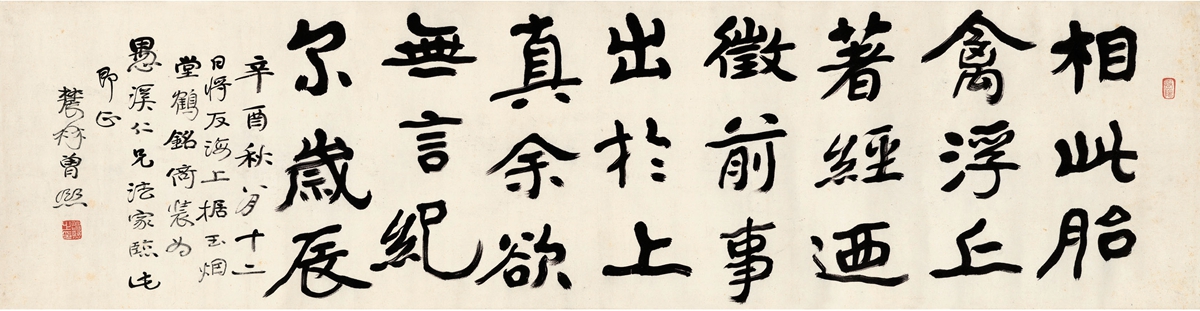 相此胎
禽浮丘
著經迺
徵前事
出於上
真余欲
無言紀
尔歲辰
辛酉秋八月十二
日將反海上据玉烟
堂鶴銘倚裝为
愚溪仁兄法家臨此
即正
農髯曾熙